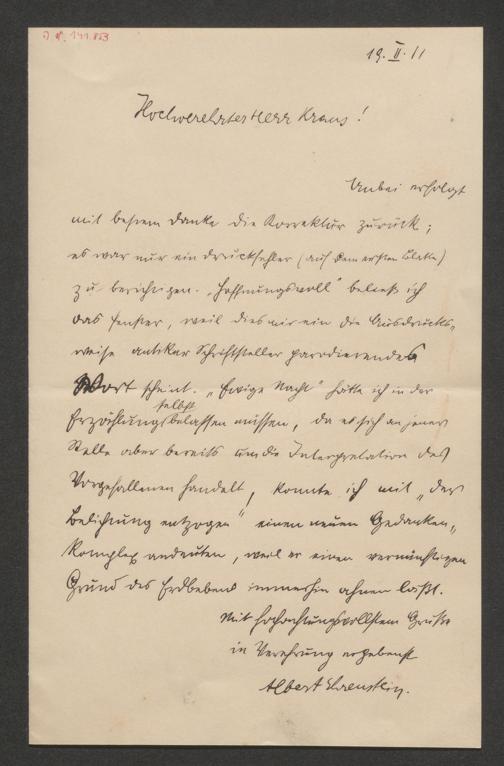 J.N. 141.853
19. II. 11
Hochverehrter Herr Kraus!
Anbei erfolgt
mit bestem Danke die Korrektur zurück;
es war nur ein Druckfehler (auf dem ersten Blatte)
zu berichtigen. „Hoffnungsvoll" beließ ich
das Fenster, weil dies mir ein die Ausdrucks-
weise antiker Schriftsteller parodierendes
Wort scheint. „Ewige Nacht" hätte ich in der
Erzählung selbst belassen müssen, da es sich an jener
Stelle aber bereits um die Interpretation des
Vorgefallenen handelt, konnte ich mit „der
Belichtung entzogen" einen neuen Gedanken-
komplex andeuten, weil er einen vernünftigen
Grund des Erdbebens immerhin ahnen läßt.
Mit hochachtungsvollstem Gruße
in Verehrung ergebenst
Albert